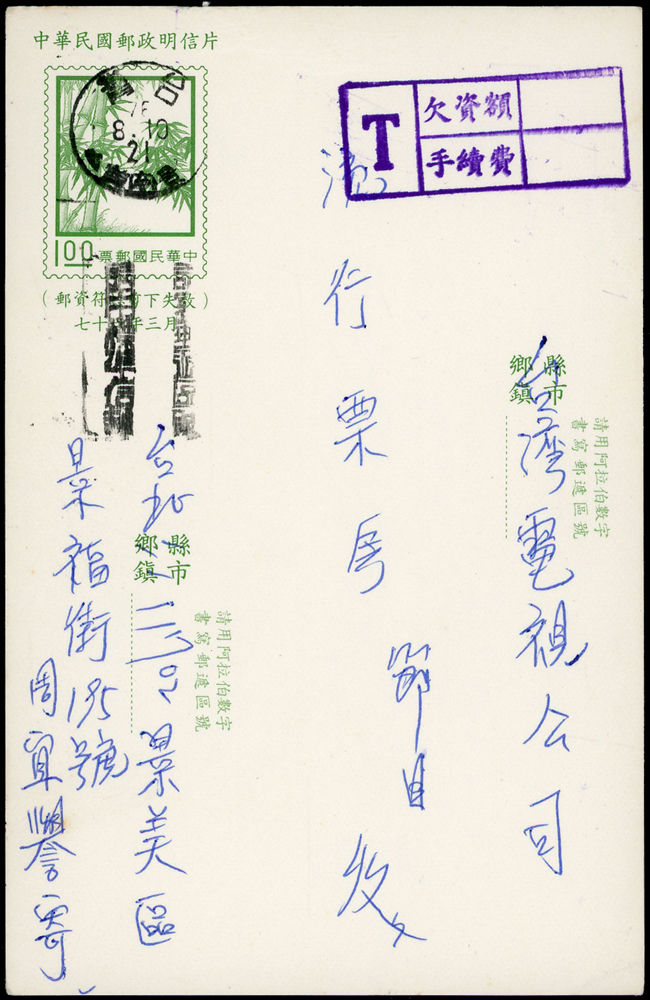 片信明政郵國民華中
1.00
票郵國民華中
台
76
8.10
21
T
欠資額
手續費
縣市
鄉鎮
請用阿拉伯數字
書寫郵遞區號
台灣電視公司
行票房
節目
收
縣市
鄉鎮
請用阿拉伯數字
書寫郵遞區號
台北
景美區
景福街195號
周宜譽寄